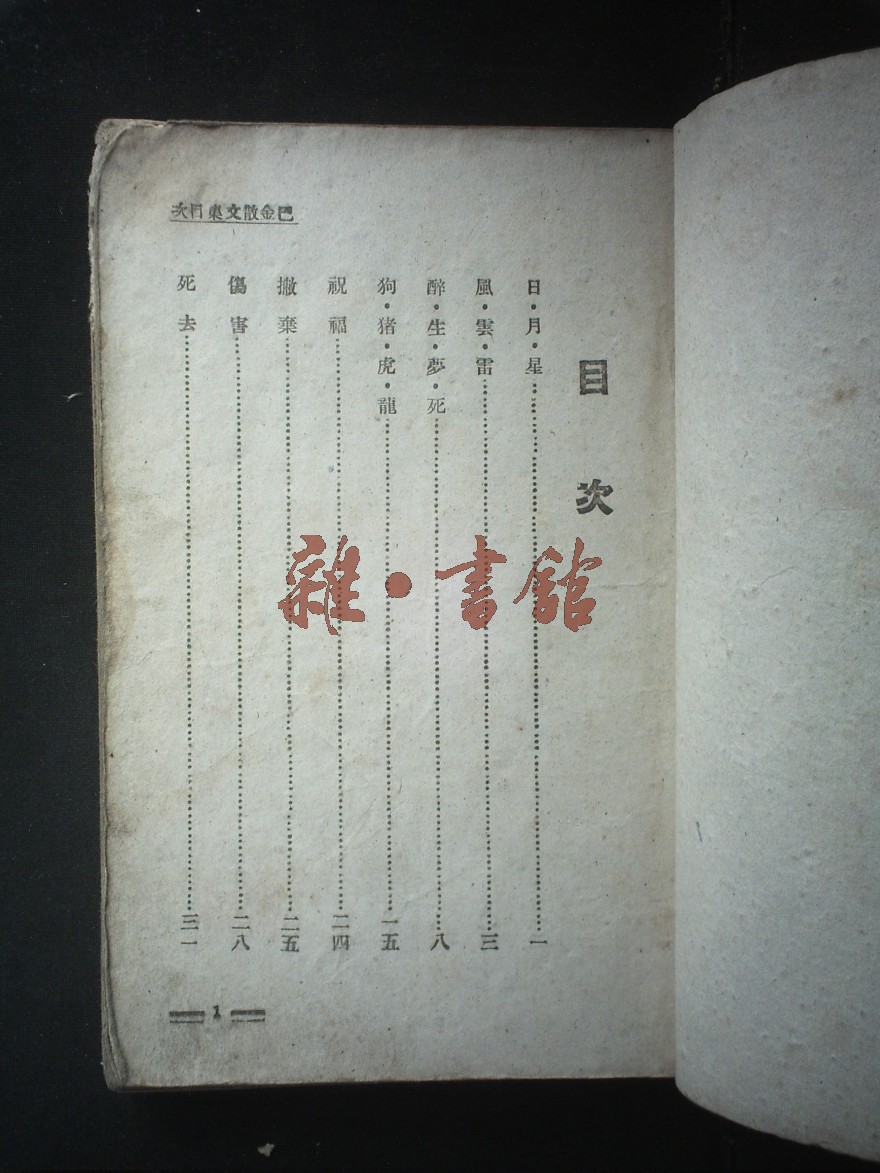 巴金散文集目次
目次
日·月·星……一
風·雲·雷……三
醉·生·夢·死……八
狗·猪·虎·龍……一五
祝福……二四
撇棄……二五
傷害……二八
死去……三一
1
雜·書館